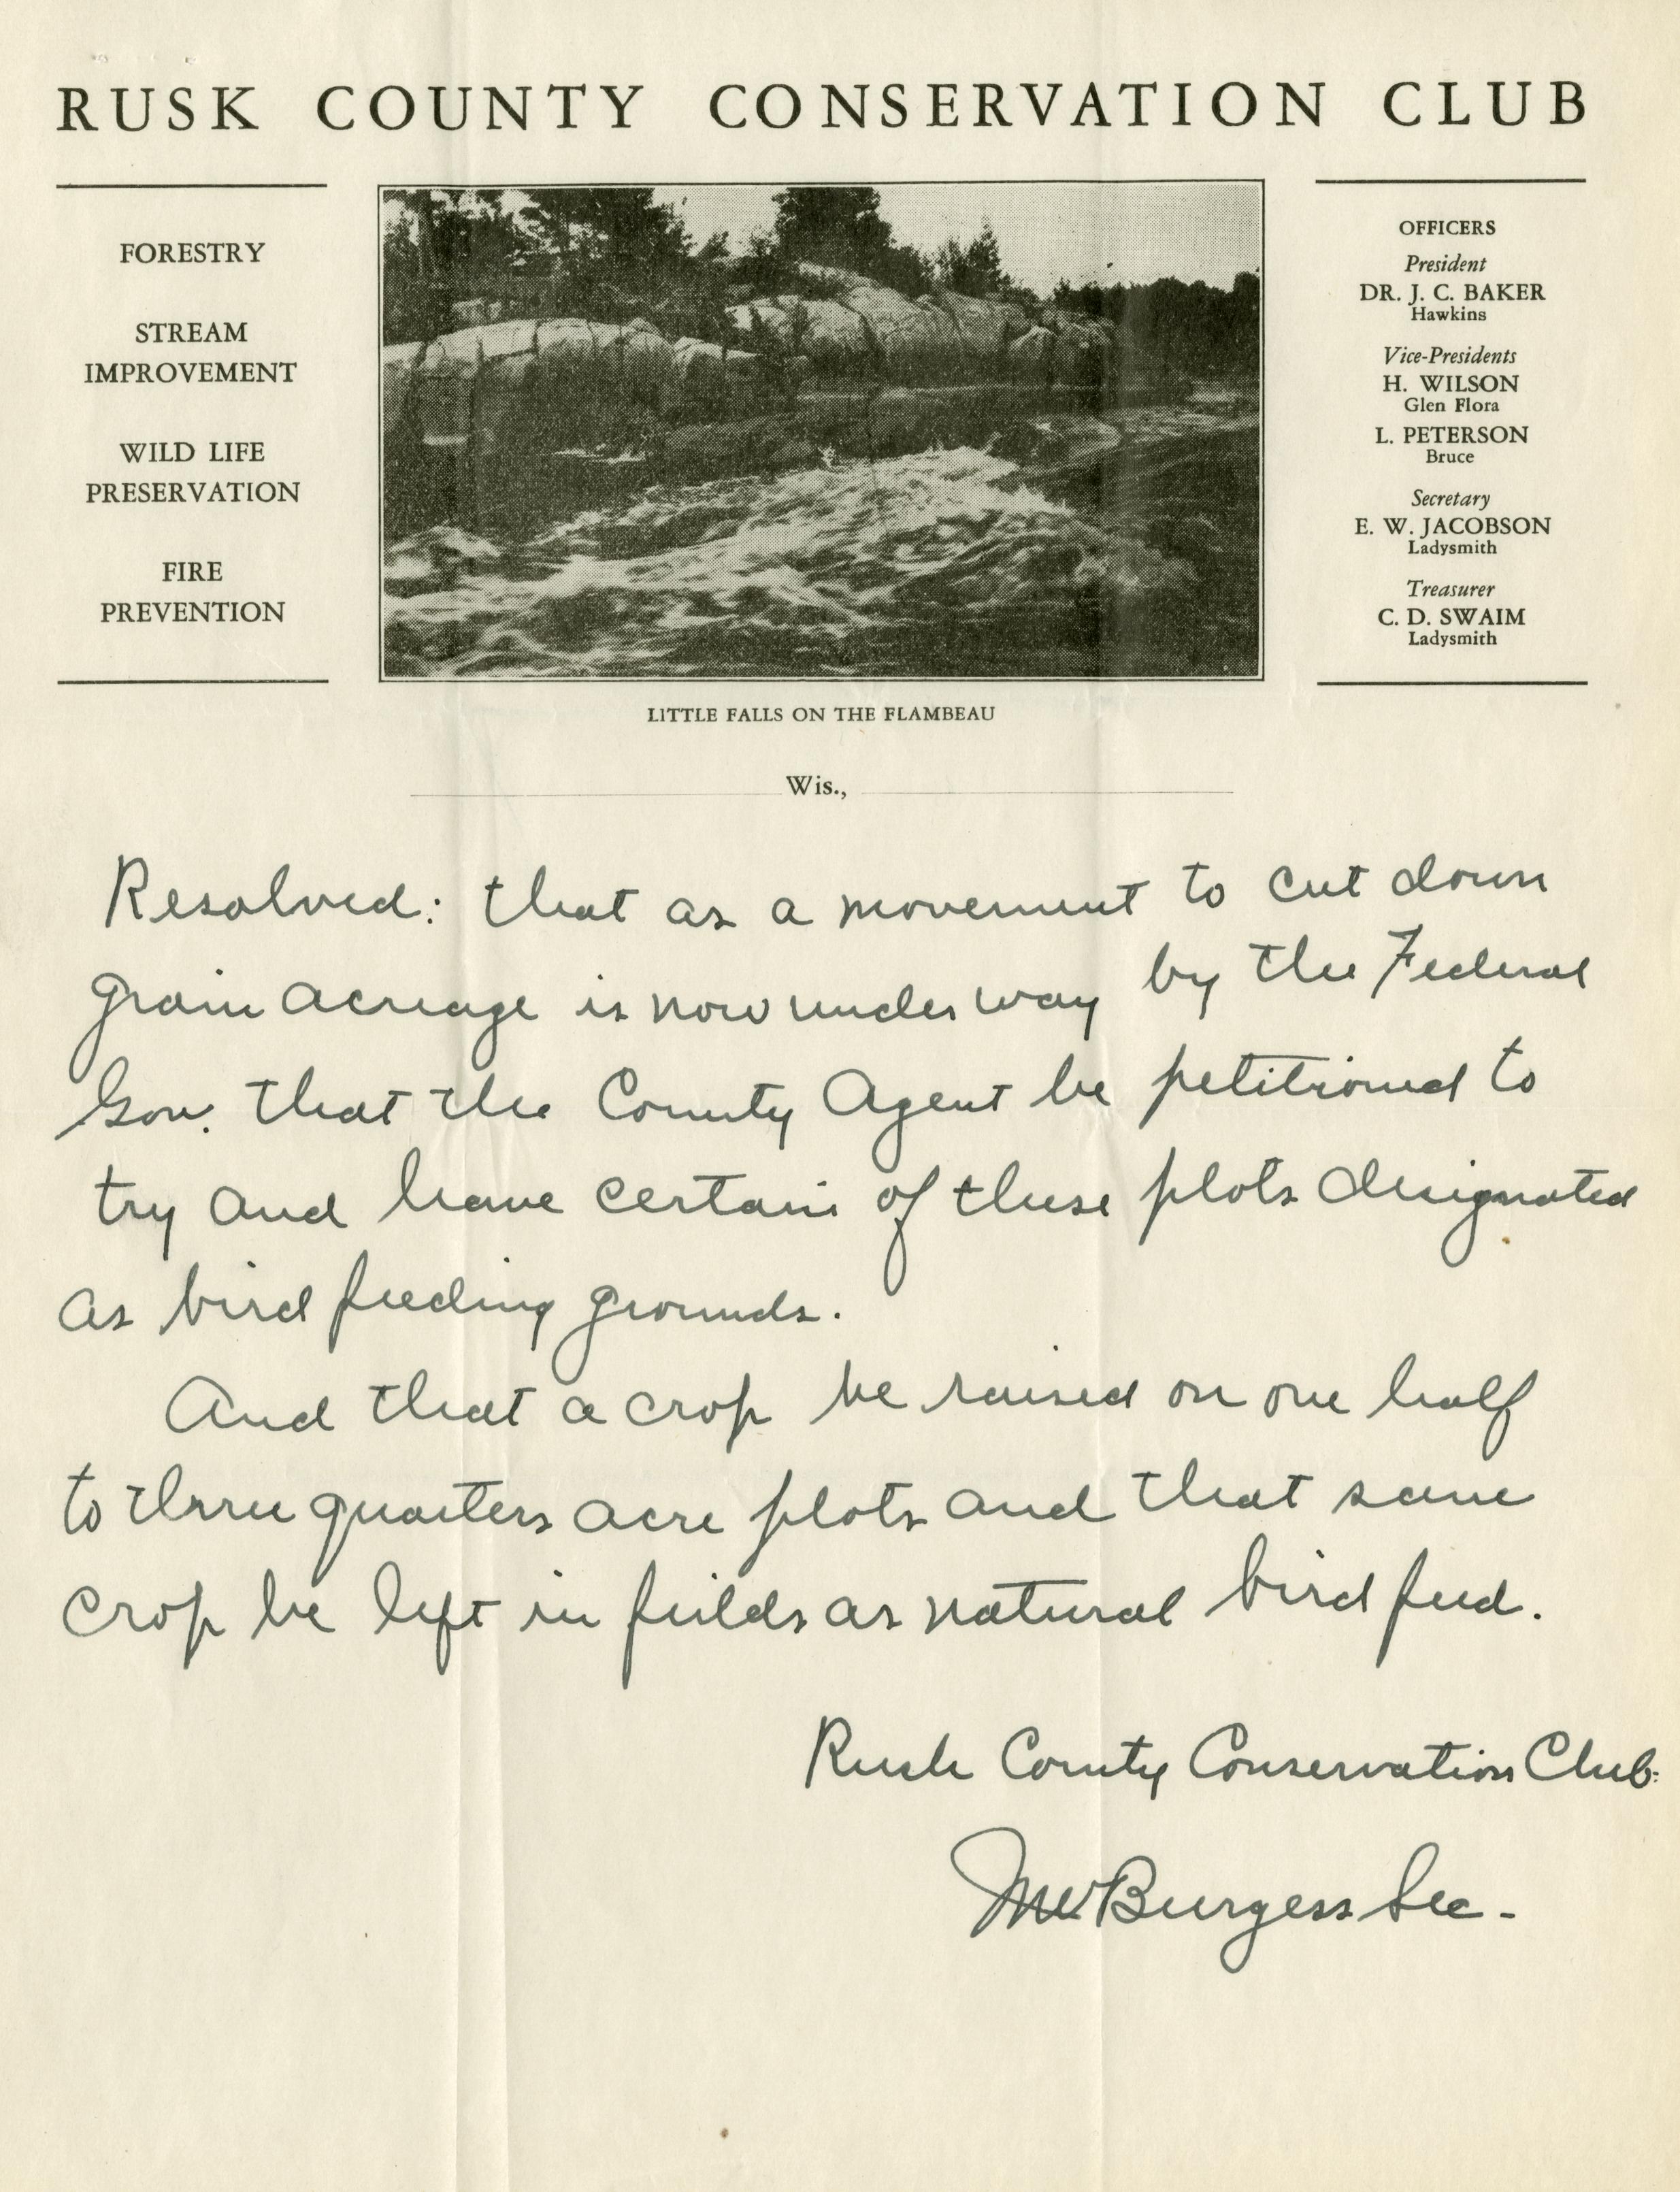 RUSK COUNTY CONSERVATION CLUB
FORESTRY
STREAM
IMPROVEMENT
WILD LIFE
PRESERVATION
FIRE
PREVENTION
LITTLE FALLS ON THE FLAMBEAU
OFFICERS
President
DR. J. C. BAKER
Hawkins
Vice-Presidents
H. WILSON
Glen Flora
L. PETERSON
Bruce
Secretary
E. W. JACOBSON
Ladysmith
Treasurer
C. D. SWAIM
Ladysmith
Wis.,
Resolved: that as a movement to cut down
grain acreage is now under way by the Federal
Gov. that the County Agent be petitioned to
try and have certain of these plots designated
as bird feeding grounds.
And that a crop be raised on one half
to three quarters acre plots and that same
crop be left in fields as natural bird feed.
Rusk County Conservation Club.
Burgess Sec.